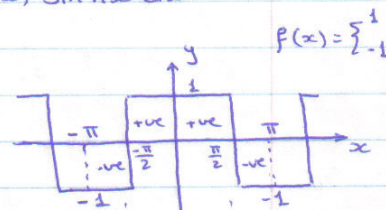 f(x) = { 1
-1
y
1
-π +ve +ve π
-ve -π/2 π/2 -ve x
-1 -1